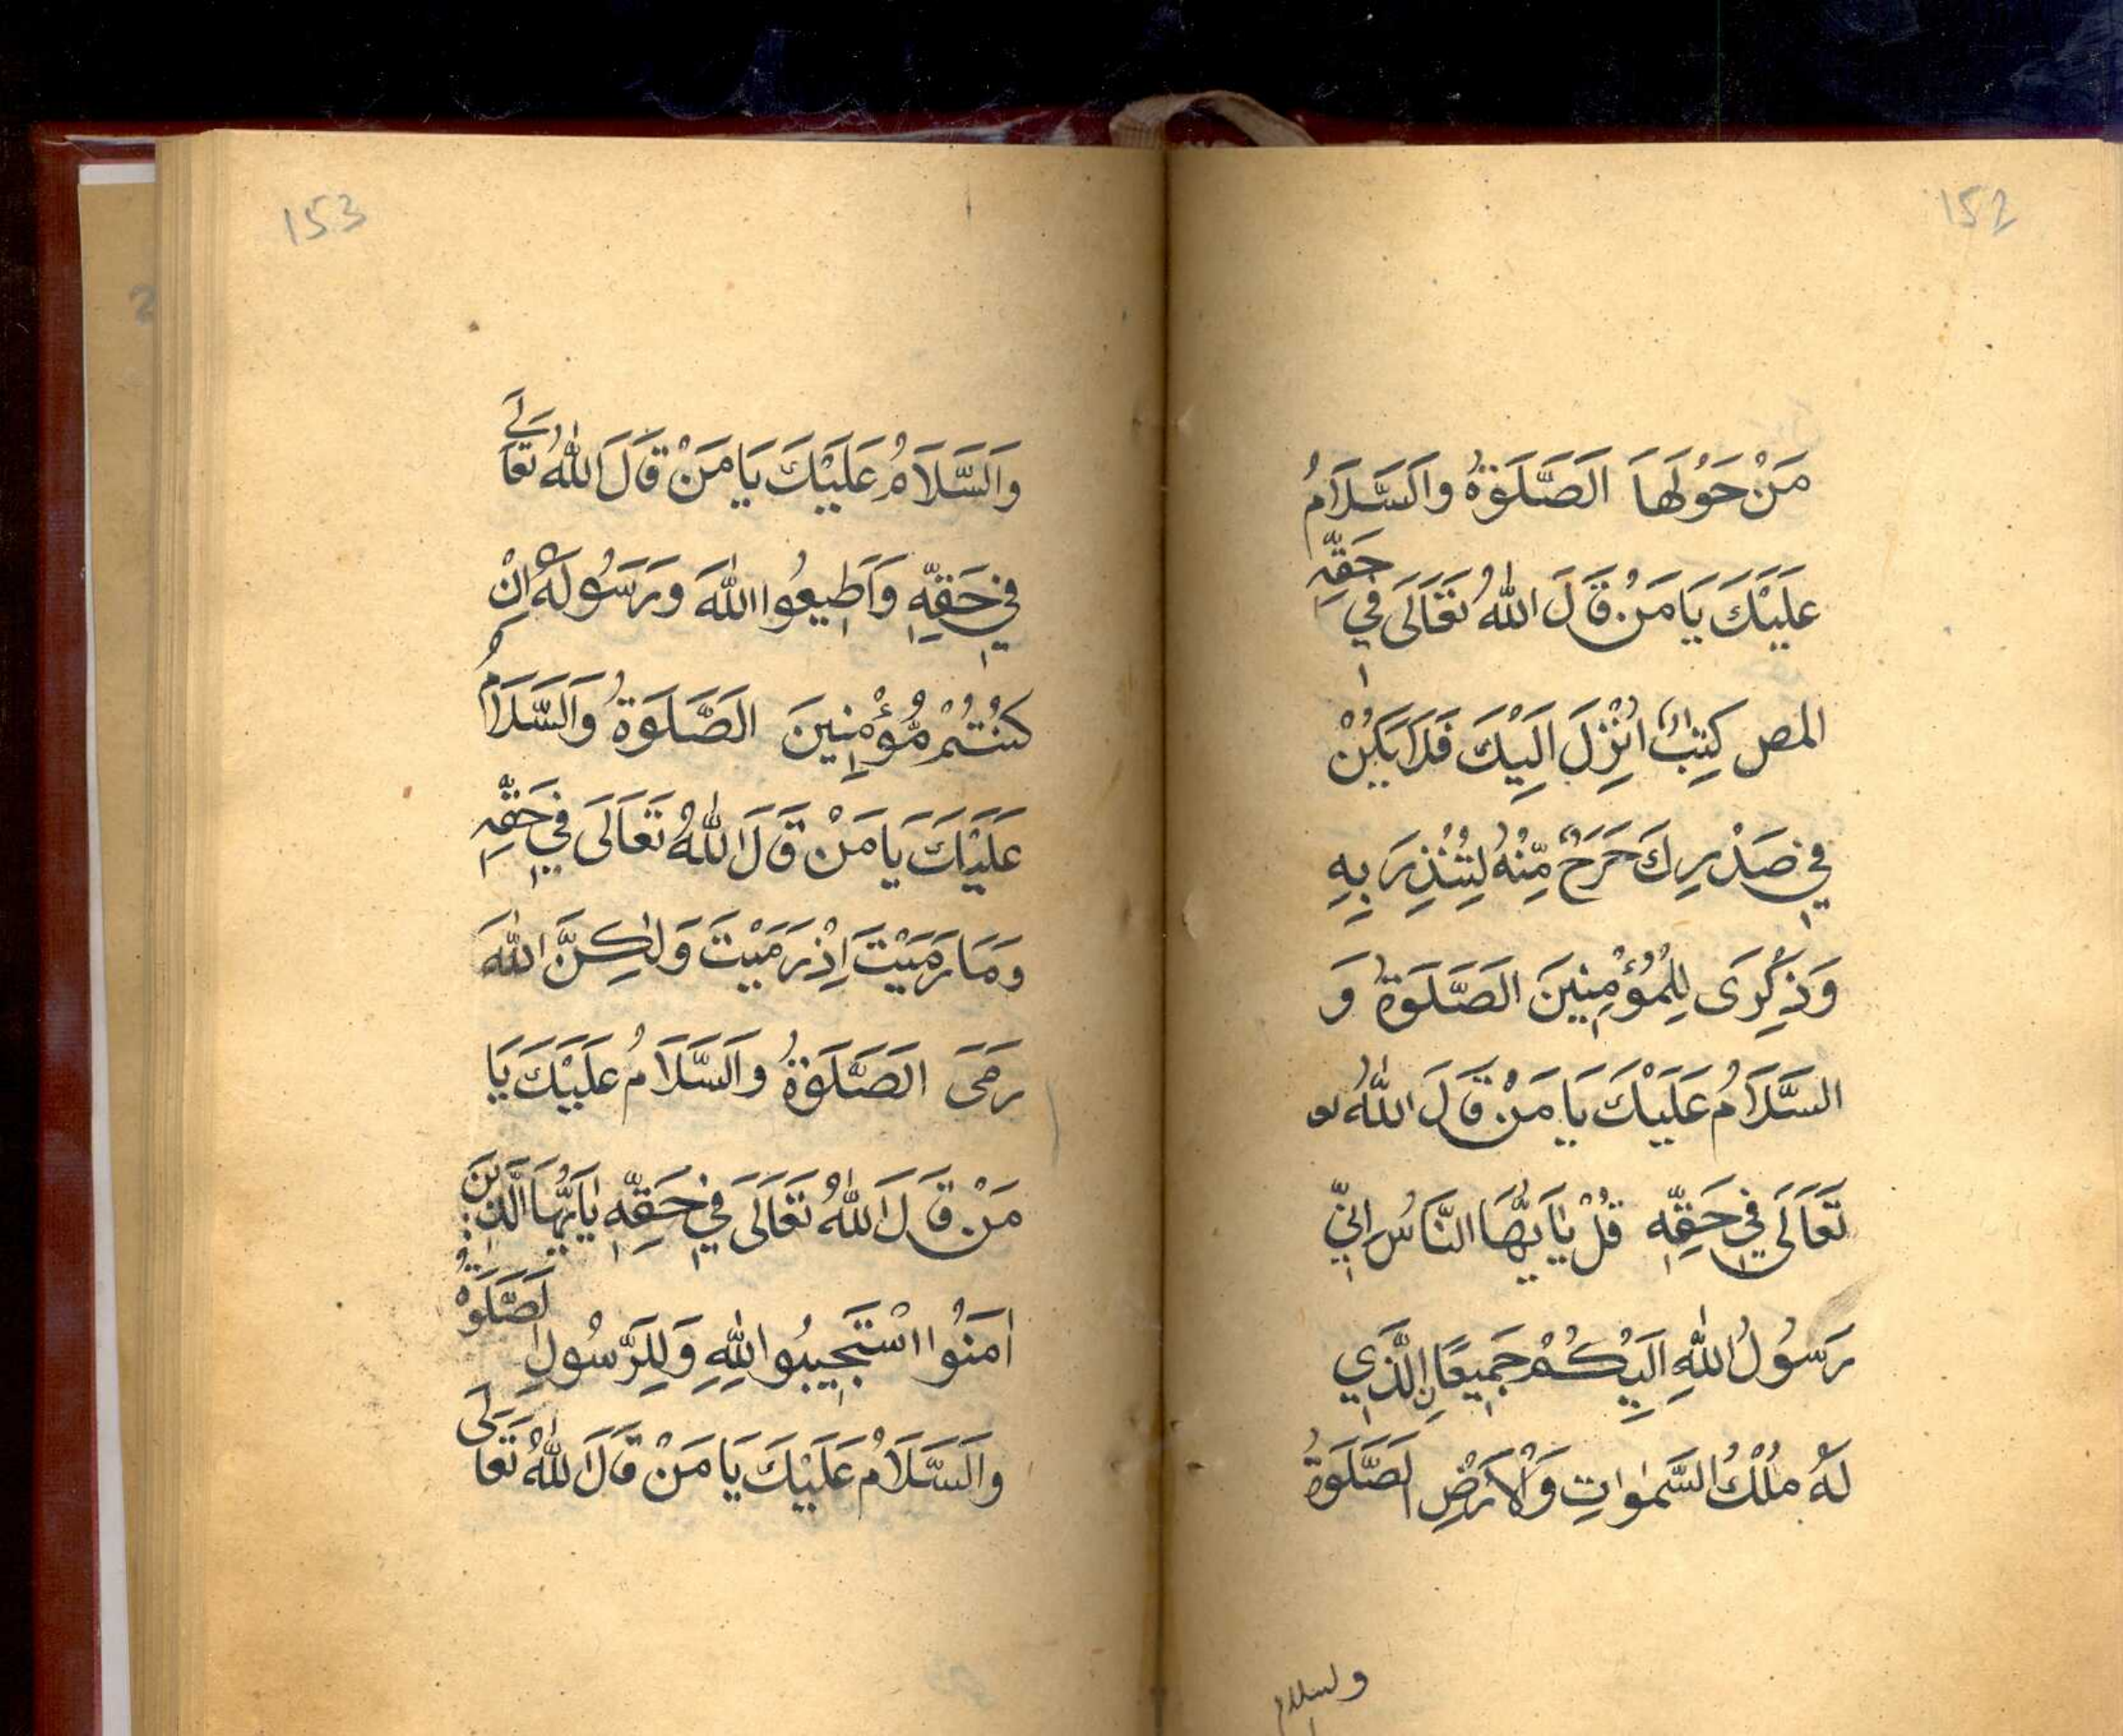 152
مَنْ حَوْلَهَا الصَّلَوٰةُ وَالسَّلَامُ
عَلَيْكَ يَا مَنْ قَالَ اللّٰهُ تَعَالَى فِي حَقِّهِ
المص كِتٰبٌ اُنْزِلَ اِلَيْكَ فَلَا يَكُنْ
فِي صَدْرِكَ حَرَجٌ مِّنْهُ لِتُنْذِرَ بِهِ
وَذِكْرَى لِلْمُؤْمِنِينَ الصَّلَوٰةُ وَ
السَّلَامُ عَلَيْكَ يَا مَنْ قَالَ اللّٰهُ تع
تَعَالَى فِي حَقِّهِ قُلْ يٰاَيُّهَا النَّاسُ اِنِّي
رَسُولُ اللّٰهِ اِلَيْكُمْ جَمِيعًانِ الَّذِي
لَهُ مُلْكُ السَّمٰوٰاتِ وَالْاَرْضِ الصَّلَوٰةُ
ولسلام
153
وَالسَّلَامُ عَلَيْكَ يَا مَنْ قَالَ اللّٰهُ تَعَالَى
فِي حَقِّهِ وَاَطِيعُوا اللّٰهَ وَرَسُولَهُ اِنْ
كُنْتُمْ مُّؤْمِنِينَ الصَّلَوٰةُ وَالسَّلَامُ
عَلَيْكَ يَا مَنْ قَالَ اللّٰهُ تَعَالَى فِي حَقِّهِ
وَمَا رَمَيْتَ اِذْ رَمَيْتَ وَلٰكِنَّ اللّٰهَ
رَمَى الصَّلَوٰةُ وَالسَّلَامُ عَلَيْكَ يَا
مَنْ قَالَ اللّٰهُ تَعَالَى فِي حَقِّهِ يٰاَيُّهَا الَّذِينَ
اٰمَنُوا اسْتَجِيبُوا لِلّٰهِ وَلِلرَّسُولِ الصَّلَوٰةُ
وَالسَّلَامُ عَلَيْكَ يَا مَنْ قَالَ اللّٰهُ تَعَالَى